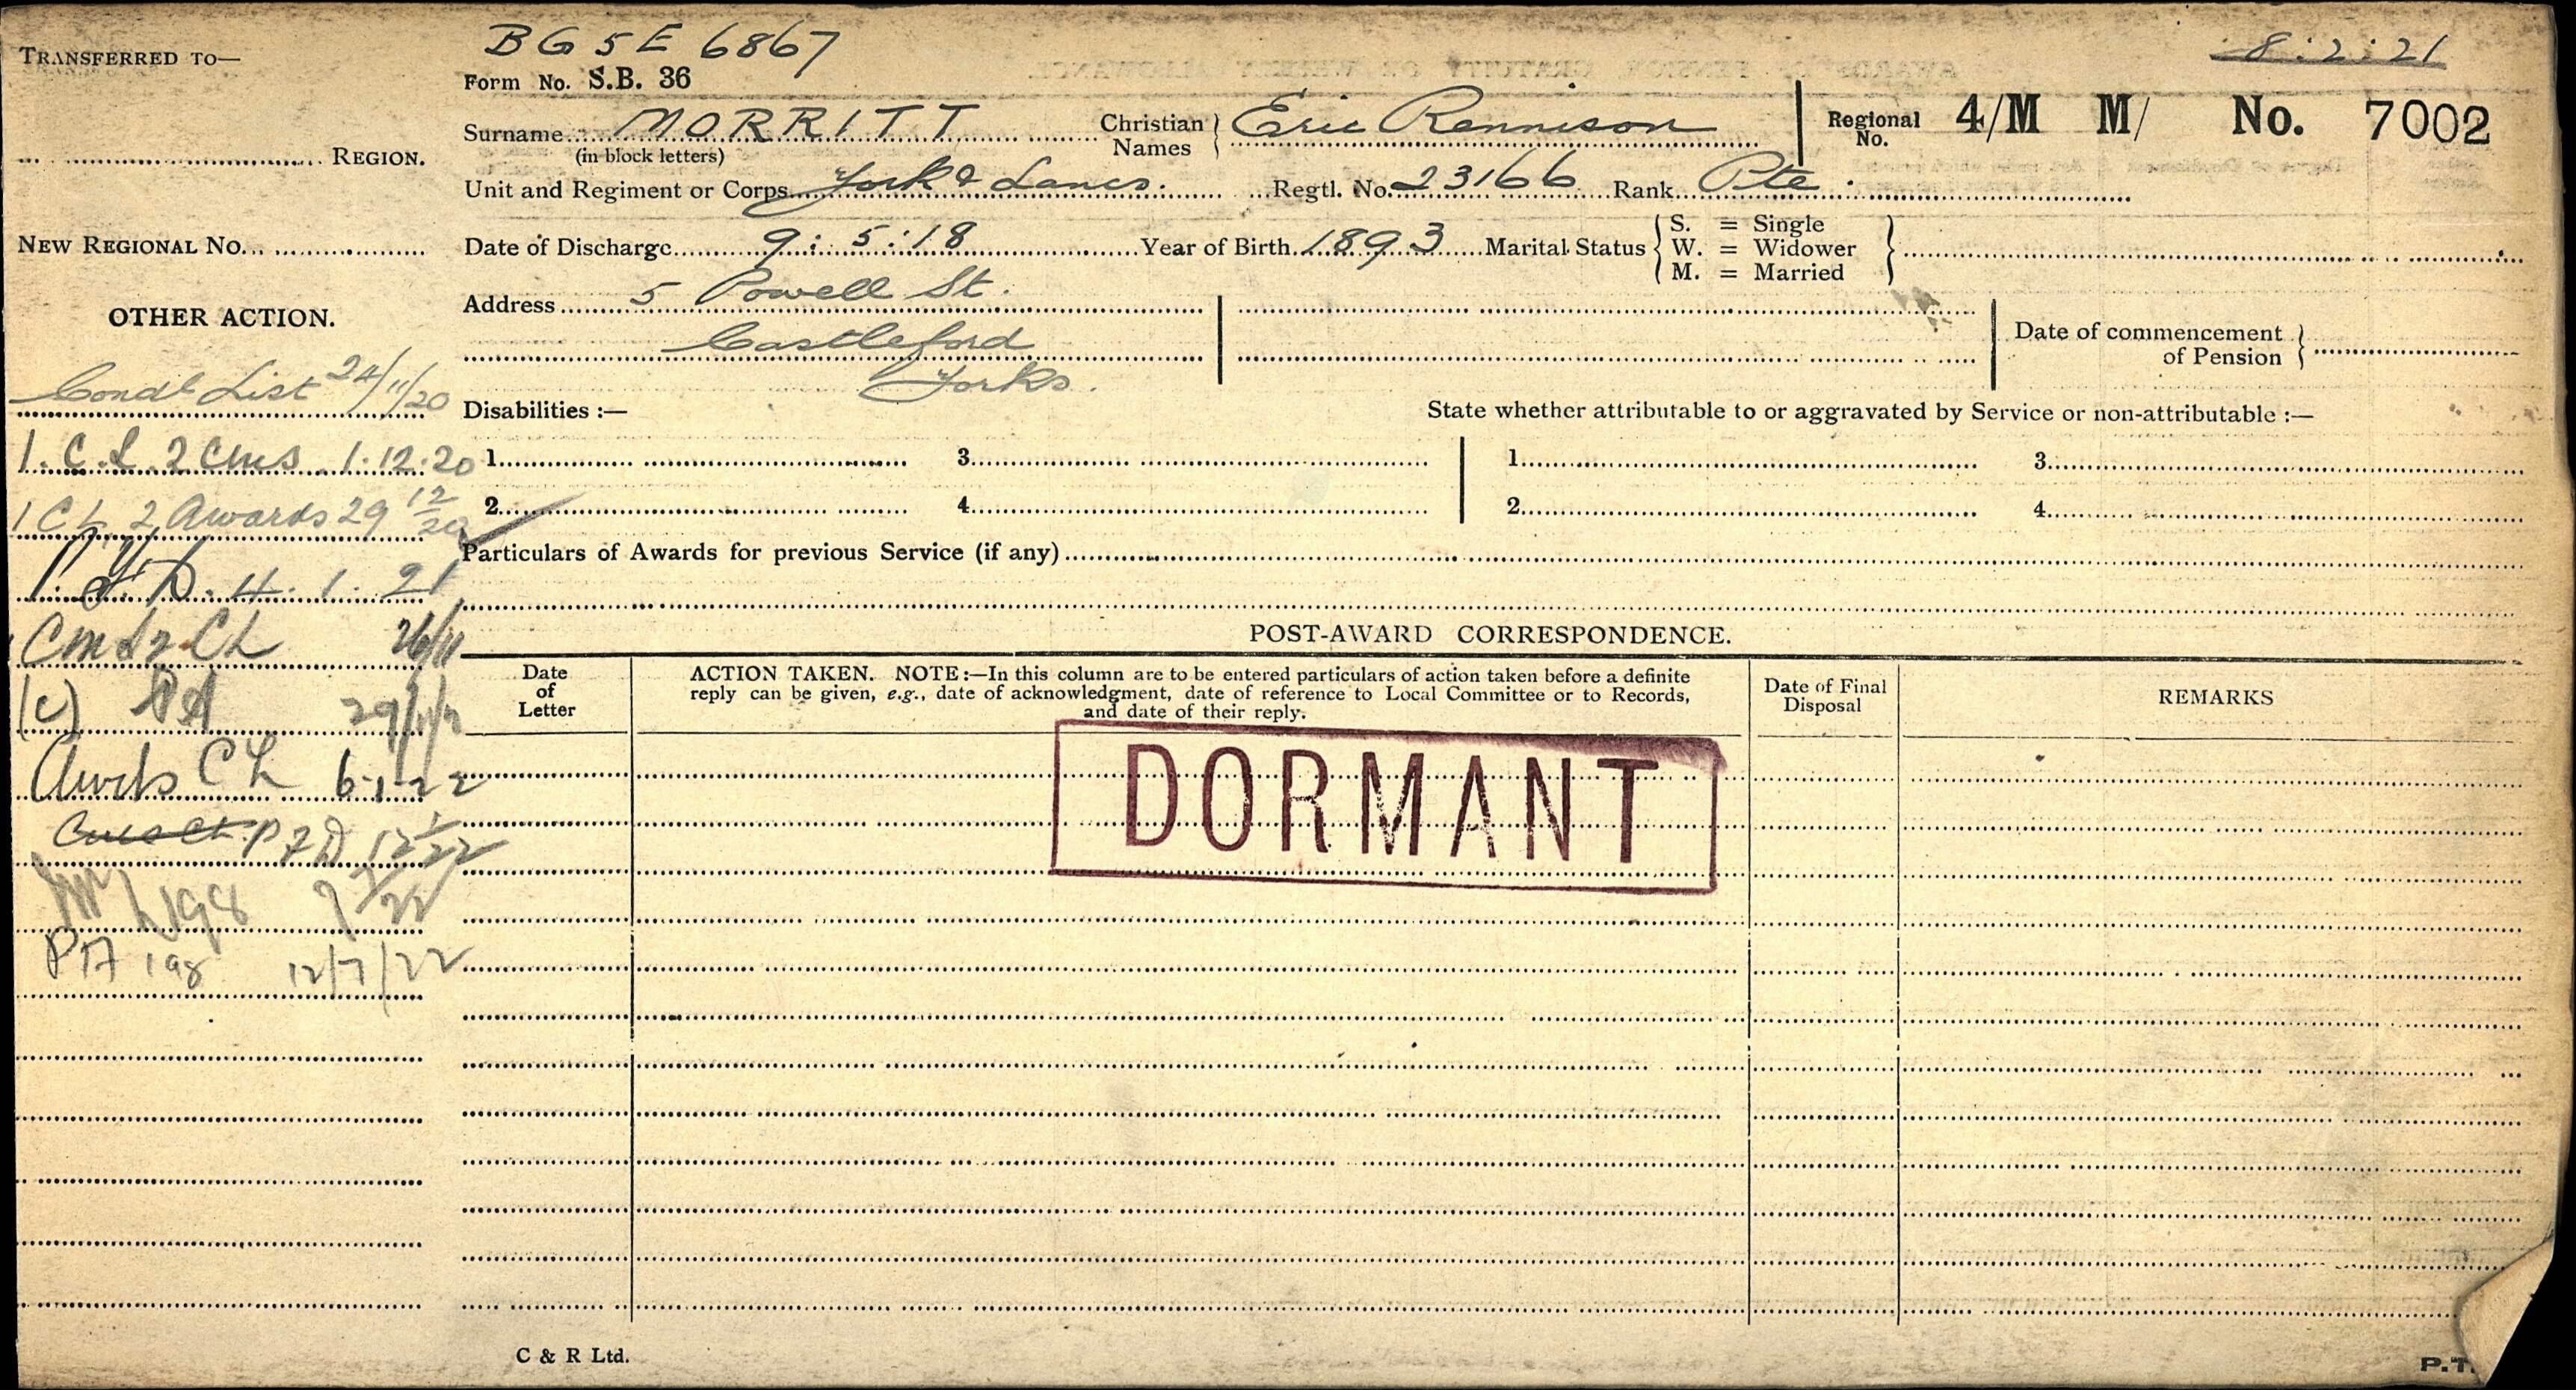 TRANSFERRED TO—
REGION.
NEW REGIONAL No.
OTHER ACTION.
Condl List 24/11/20
1. C.L. 2 Cms 1.12.20
1 CL 2 Awards 29 12/20
4. 1. 21
CL 26/11
(c)
Awds CL 6-1-22
P 7 D 12 1/22
198
PA 198 12/7/22
BG 5 E 6867
8:2:21
Form No. S.B. 36
Surname MORRITT Christian Names Eric Rennison Regional No. 4/M M/ No. 7002
(in block letters)
Unit and Regiment or Corps York & Lancs. Regtl. No. 23166 Rank Pte.
Date of Discharge 9:5:18 Year of Birth 1893 Marital Status S. = Single W. = Widower M. = Married
Address 5 Powell St.
Castleford
Yorks.
Date of commencement of Pension
Disabilities :— State whether attributable to or aggravated by Service or non-attributable :—
1. 3. 1. 3.
2. 4. 2. 4.
Particulars of Awards for previous Service (if any)
POST-AWARD CORRESPONDENCE.
Date of Letter
ACTION TAKEN. NOTE:—In this column are to be entered particulars of action taken before a definite
reply can be given, e.g., date of acknowledgment, date of reference to Local Committee or to Records,
and date of their reply.
Date of Final Disposal
REMARKS
DORMANT
C & R Ltd.